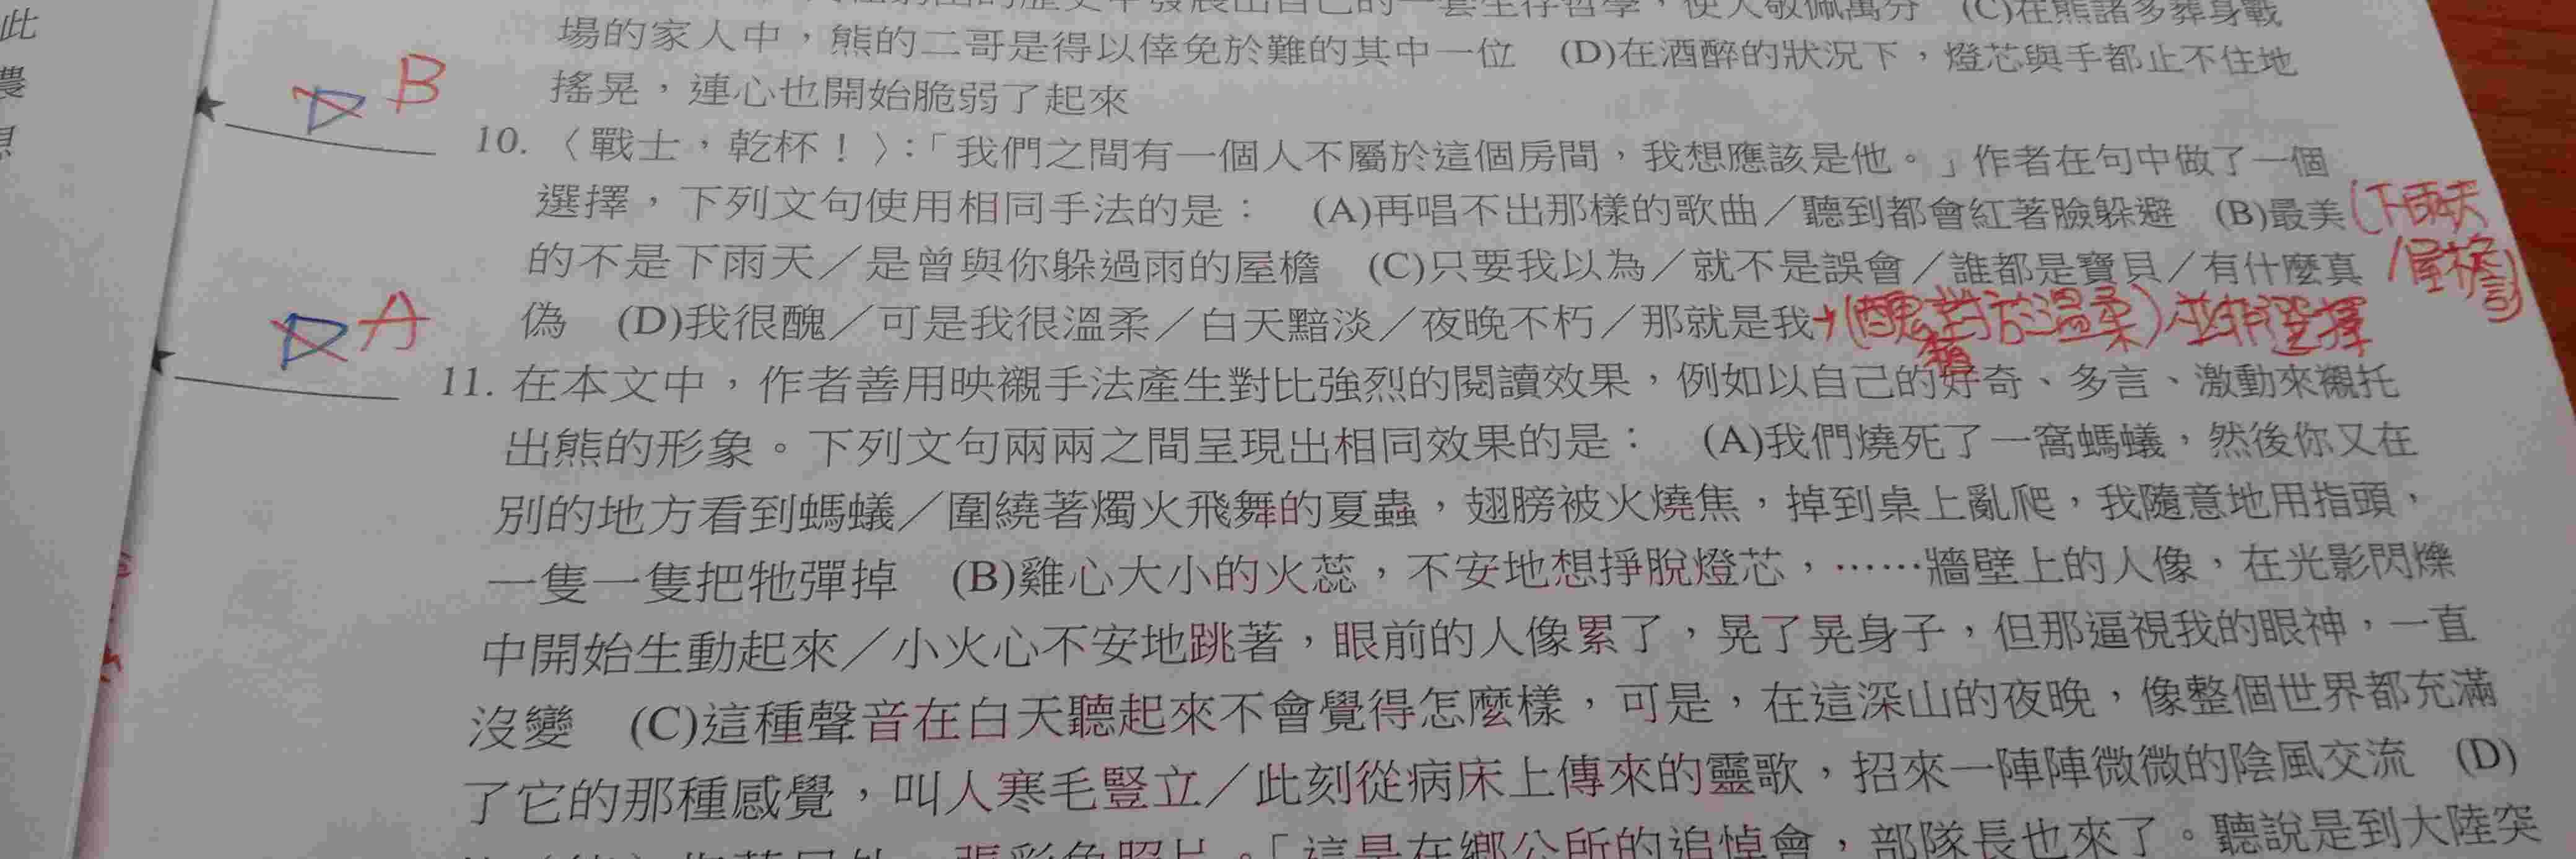 此
農
場的家人中，熊的二哥是得以倖免於難的其中一位　(D)在酒醉的狀況下，燈芯與手都止不住地
搖晃，連心也開始脆弱了起來
D B
10.〈戰士，乾杯！〉：「我們之間有一個人不屬於這個房間，我想應該是他。」作者在句中做了一個
選擇，下列文句使用相同手法的是：　(A)再唱不出那樣的歌曲／聽到都會紅著臉躲避　(B)最美
(下雨天
的不是下雨天／是曾與你躲過雨的屋檐　(C)只要我以為／就不是誤會／誰都是寶貝／有什麼真
/屋檐)
偽　(D)我很醜／可是我很溫柔／白天黯淡／夜晚不朽／那就是我
→(醜對於溫柔)並非選擇
D A
11. 在本文中，作者善用映襯手法產生對比強烈的閱讀效果，例如以自己的好奇、多言、激動來襯托
出熊的形象。下列文句兩兩之間呈現出相同效果的是：　(A)我們燒死了一窩螞蟻，然後你又在
別的地方看到螞蟻／圍繞著燭火飛舞的夏蟲，翅膀被火燒焦，掉到桌上亂爬，我隨意地用指頭，
一隻一隻把牠彈掉　(B)雞心大小的火蕊，不安地想掙脫燈芯，……牆壁上的人像，在光影閃爍
中開始生動起來／小火心不安地跳著，眼前的人像累了，晃了晃身子，但那逼視我的眼神，一直
沒變　(C)這種聲音在白天聽起來不會覺得怎麼樣，可是，在這深山的夜晚，像整個世界都充滿
了它的那種感覺，叫人寒毛豎立／此刻從病床上傳來的靈歌，招來一陣陣微微的陰風交流　(D)
一張彩色照片。「這是在鄉公所的追悼會，部隊長也來了。聽說是到大陸突